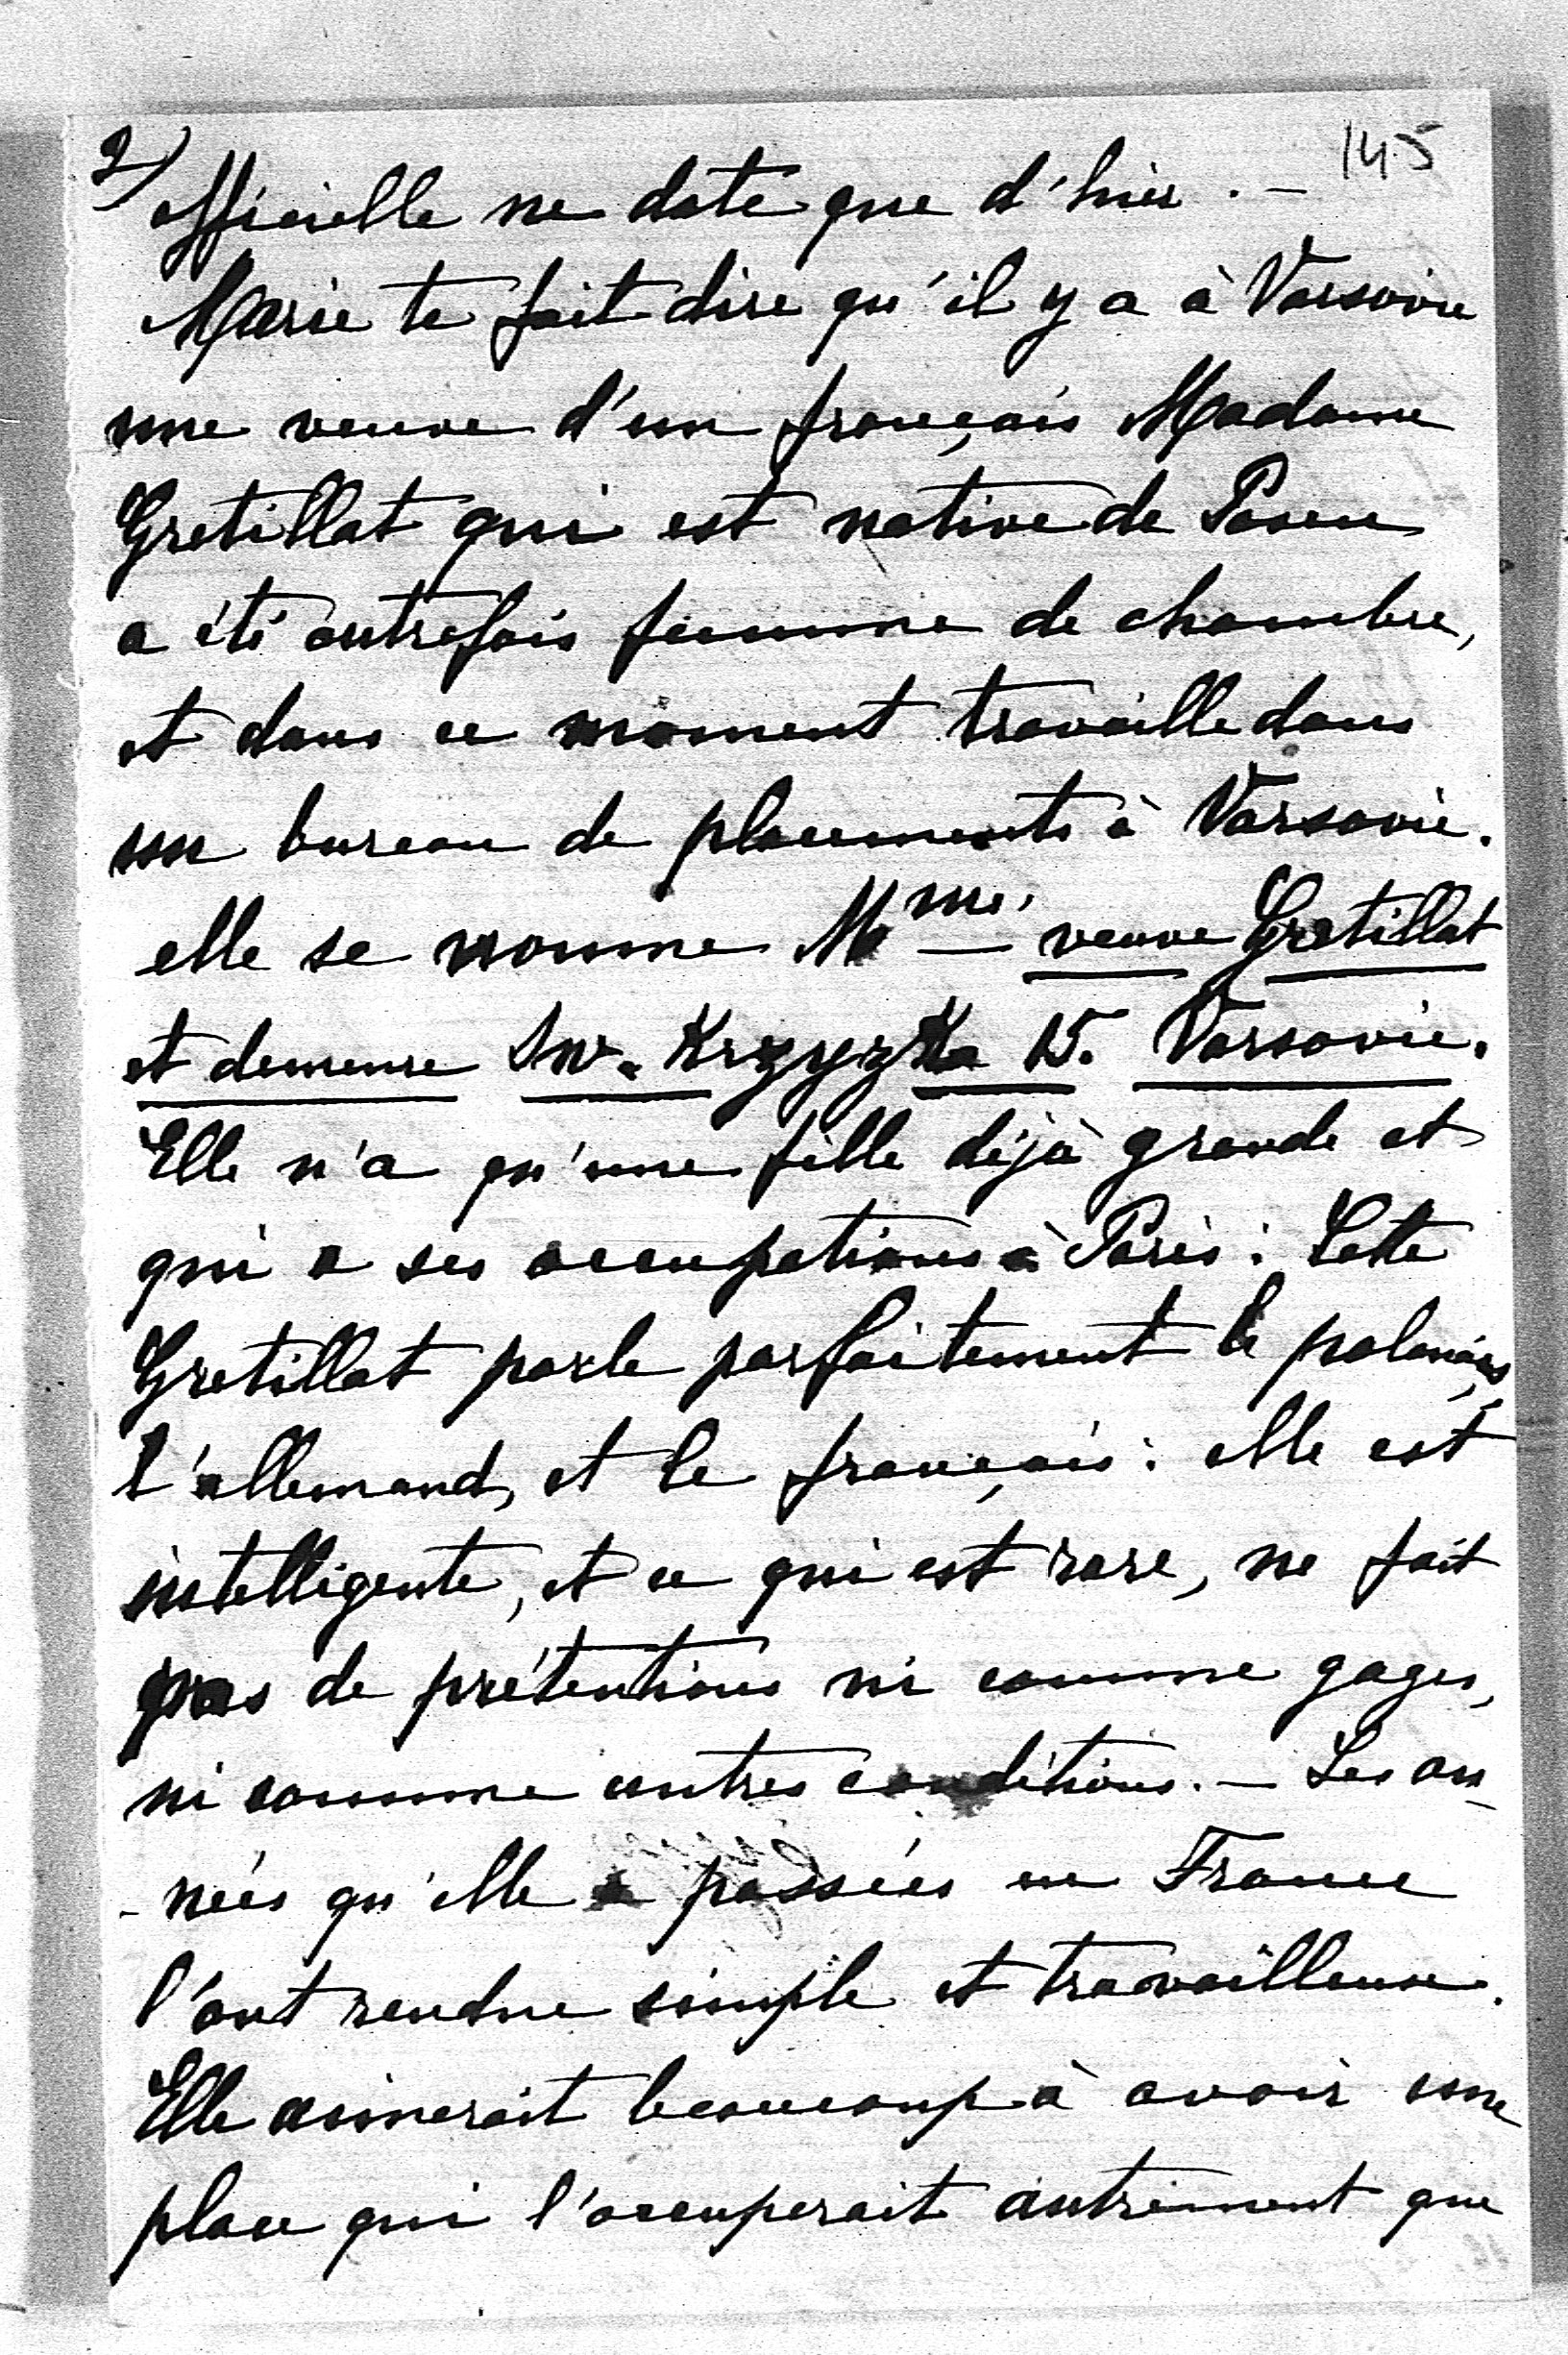 2) 145
officielle ne date que d'hier. —
Marie te fait dire qu'il y a à Varsovie
une veuve d'un français Madame
Gretillat qui est native de Posen
a été autrefois femme de chambre,
et dans ce moment travaille dans
un bureau de placements à Varsovie.
elle se nomme Mme. veuve Gretillat
et demeure Sw. Krzyzka 15. Varsovie.
Elle n'a qu'une fille déjà grande et
qui a ses occupations à Paris: Cette
Gretillat parle parfaitement le polonais,
l'allemand, et le français: elle est
intelligente, et ce qui est rare, ne fait
pas de prétentions ni comme gages,
ni comme autres conditions. — Les an-
-nées qu'elle a passées en France
l'ont rendue simple et travailleuse.
Elle aimerait beaucoup à avoir une
place qui l'occuperait autrement que